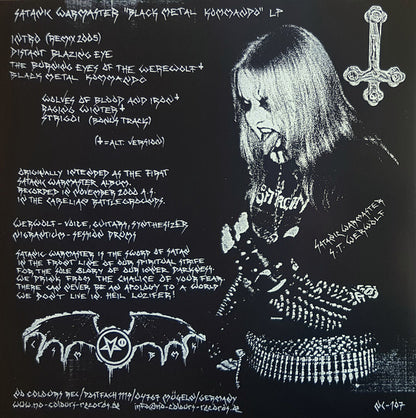 SATANIC WARMASTER "BLACK METAL KOMMANDO" LP
INTRO (REMIX 2005)
DISTANT BLAZING EYE
THE BURNING EYES OF THE WEREWOLF+
BLACK METAL KOMMANDO
WOLVES OF BLOOD AND IRON+
RAGING WINTER+
STRIGOI (BONUS TRACK)
(+=ALT. VERSION)
ORIGINALLY INTENDED AS THE FIRST
SATANIC WARMASTER ALBUM.
RECORDED IN NOVEMBER 2000 A.S.
IN THE CARELIAN BATTLEGROUNDS.
WERWOLF - VOICE, GUITARS, SYNTHESIZER
VHOLM - SESSION DRUMS
SATANIC WARMASTER IS THE SWORD OF SATAN
IN THE FRONT LINE OF OUR SPIRITUAL STRIFE
FOR THE SOLE GLORY OF OUR INNER DARKNESS.
WE DRINK FROM THE CHALICE OF YOUR FEAR.
THERE CAN NEVER BE AN APOLOGY TO A WORLD
WE DON'T LIVE IN. HEIL LUZIFER!
SATANIC WARMASTER
S.T. WERWOLF
NO COLOURS REC/POSTFACH 1110/04767 MÜGELN/GERMANY
www.no-colours-records.de info@no-colours-records.de
NC-107